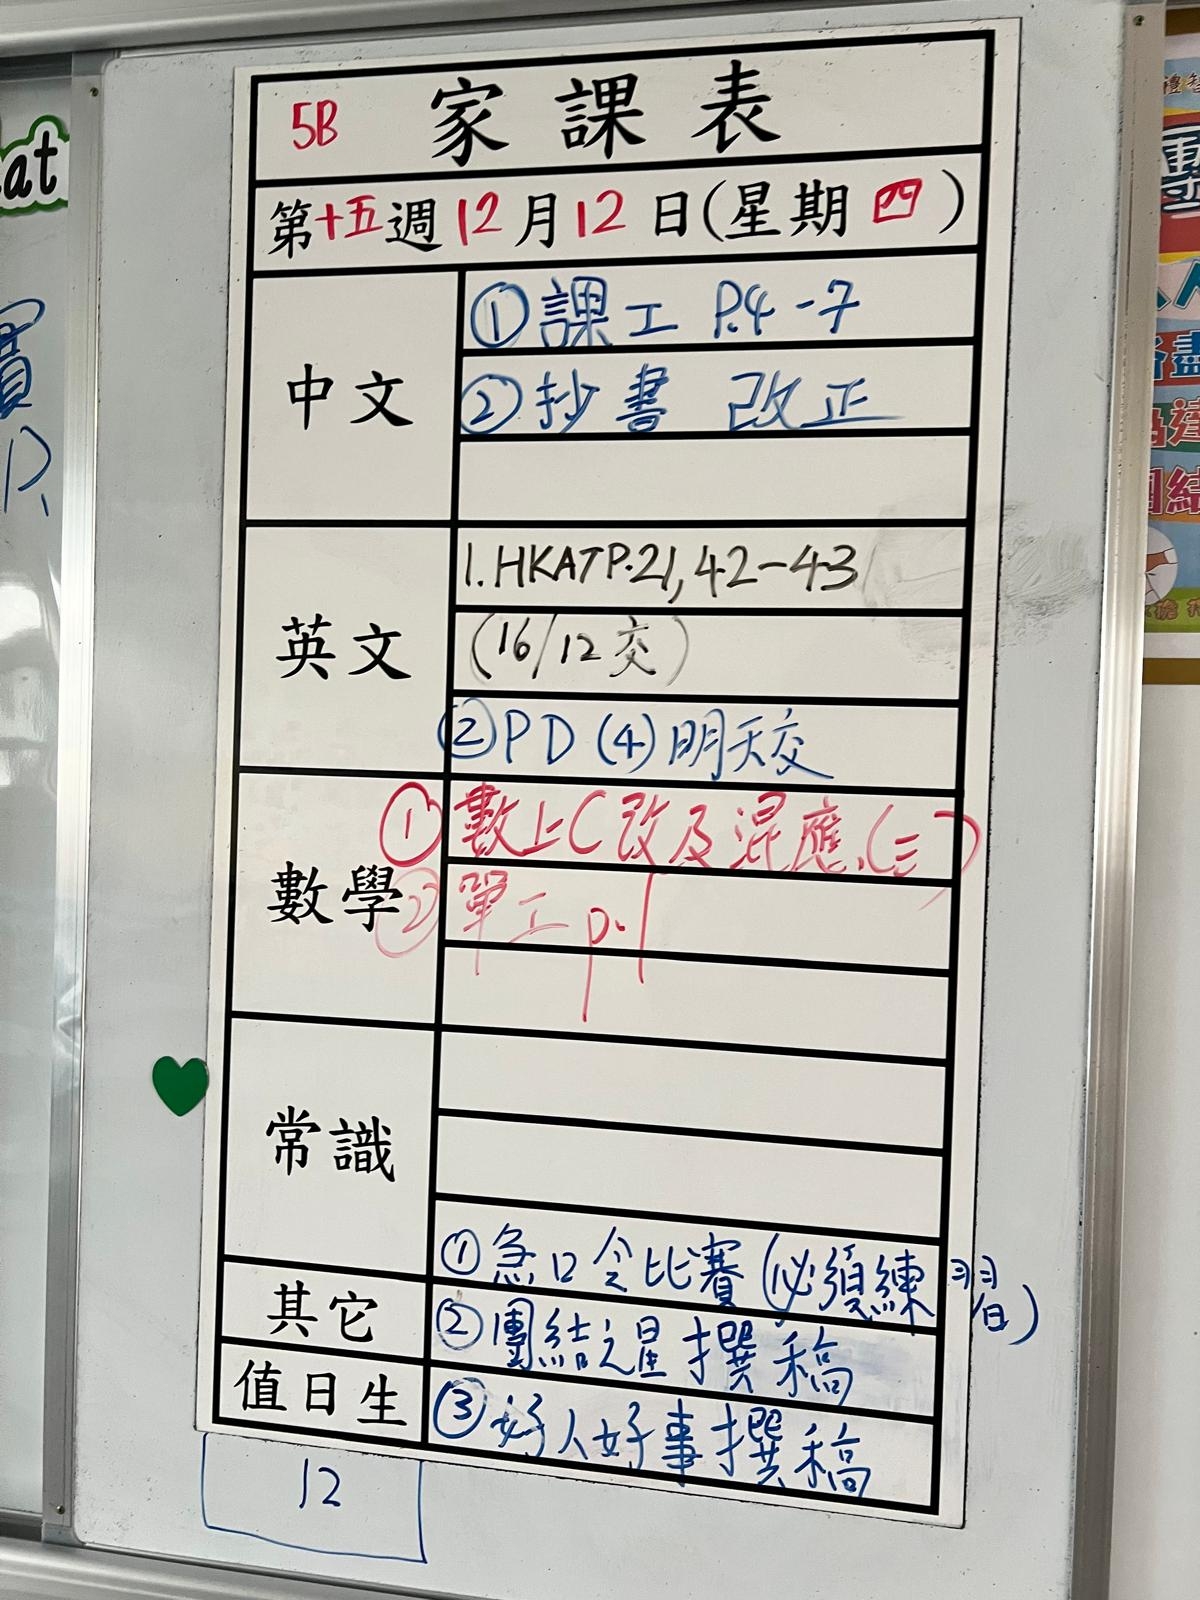 5B 家課表
第十五週12月12日(星期四)
中文
①課工 P.4-7
②抄書 改正
英文
1. HKAT P.21, 42-43
(16/12 交)
②PD (4) 明天交
數學
①數上C改及混應.(三)
②單工 p.1
常識
其它
①急口令比賽(必須練習)
②團結之星撰稿
值日生
③好人好事撰稿
12
at